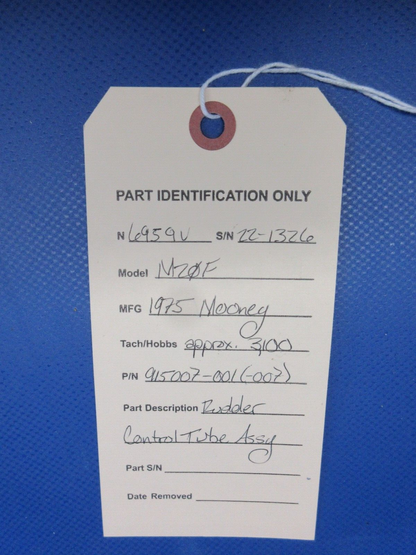 PART IDENTIFICATION ONLY
N 6959V S/N 22-1326
Model M20F
MFG 1975 Mooney
Tach/Hobbs approx. 3,100
P/N 915007-001(-007)
Part Description Rudder
Control Tube Assy
Part S/N
Date Removed